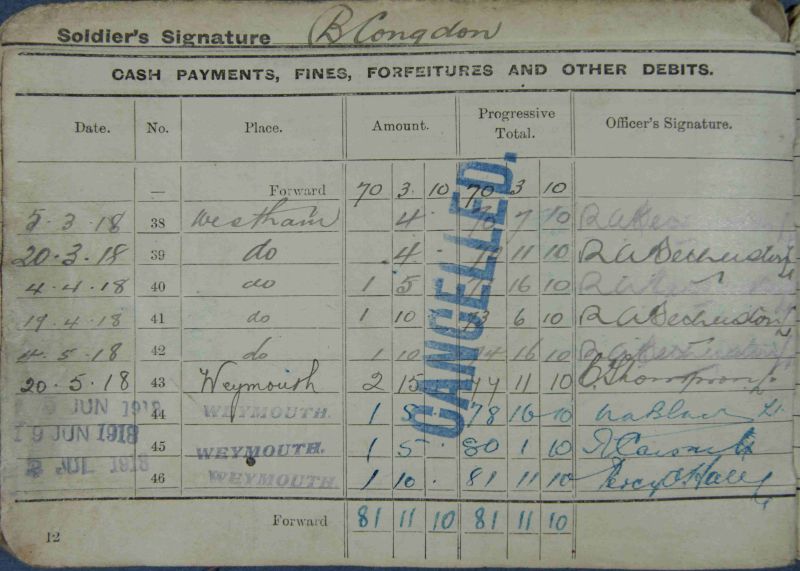 Soldier's Signature B Congdon
CASH PAYMENTS, FINES, FORFEITURES AND OTHER DEBITS.
Date. No. Place. Amount. Progressive Total. Officer's Signature.
— Forward 70 3 10 70 3 10
5.3.18 38 Westham 4 70 7 10
20.3.18 39 do 4 11 10
4.4.18 40 do 1 5 16 10
19.4.18 41 do 1 10 73 6 10
4.5.18 42 do 1 10 74 16 10
20.5.18 43 Weymouth 2 15 77 11 10
JUN 1918 44 WEYMOUTH. 1 5 78 16 10
19 JUN 1918 45 WEYMOUTH. 1 5 80 1 10
2 JUL 1918 46 WEYMOUTH 1 10 81 11 10 Percy Hall
Forward 81 11 10 81 11 10
12
CANCELLED.